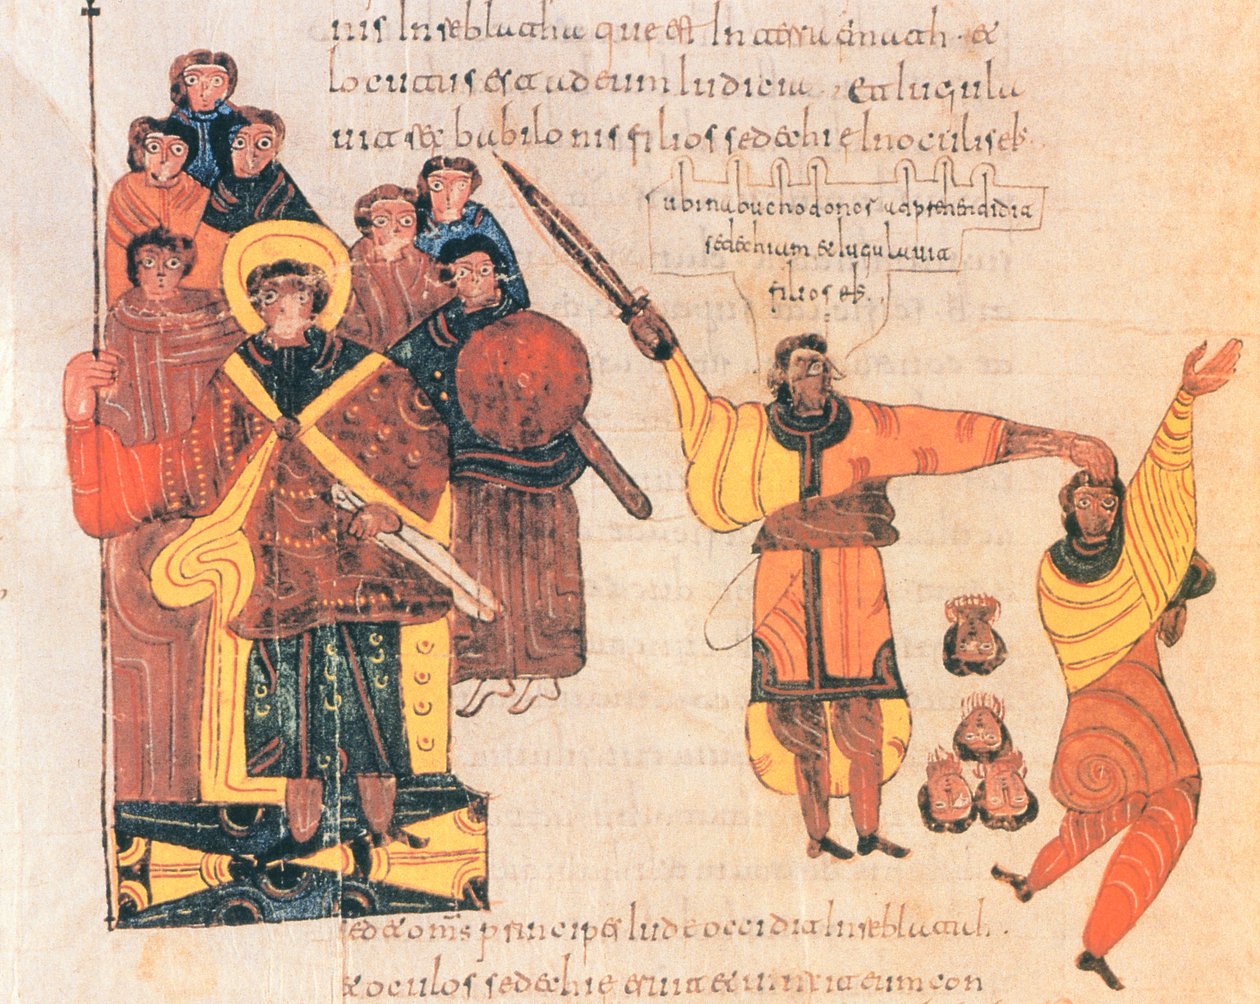 nis In reblatha que est In terra emath · et
locutus est ad eum Iudicia · Et Iugula
uit rex babilonis filios sedechie In oculis eius
ubi nabuchodonosor adprehendidit
sedecium et iugulauit
filios eius
sed et omnes principes Iude occidit In reblatath ·
et oculos sedechie eruit et uinxit eum con